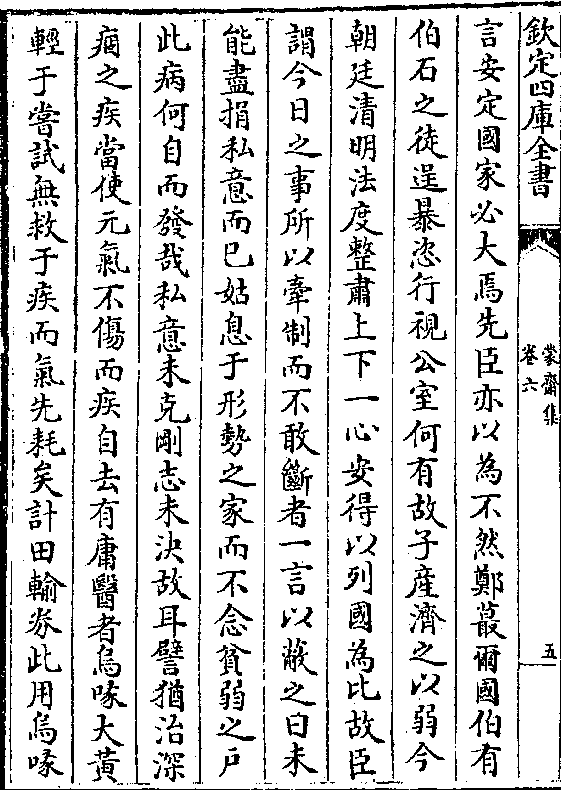 欽定四庫全書
蒙齋集
卷六
五
言安定國家必大焉先臣亦以為不然鄭蕞爾國伯有
伯石之徒逞暴恣行視公室何有故子產濟之以弱今
朝廷清明法度整肅上下一心安得以列國為比故臣
謂今日之事所以牽制而不敢斷者一言以蔽之曰未
能盡捐私意而已姑息于形勢之家而不念貧弱之戶
此病何自而發哉私意未克剛志未決故耳譬猶治深
痼之疾當使元氣不傷而疾自去有庸醫者烏喙大黃
輕于嘗試無救于疾而氣先耗矣計田輸券此用烏喙